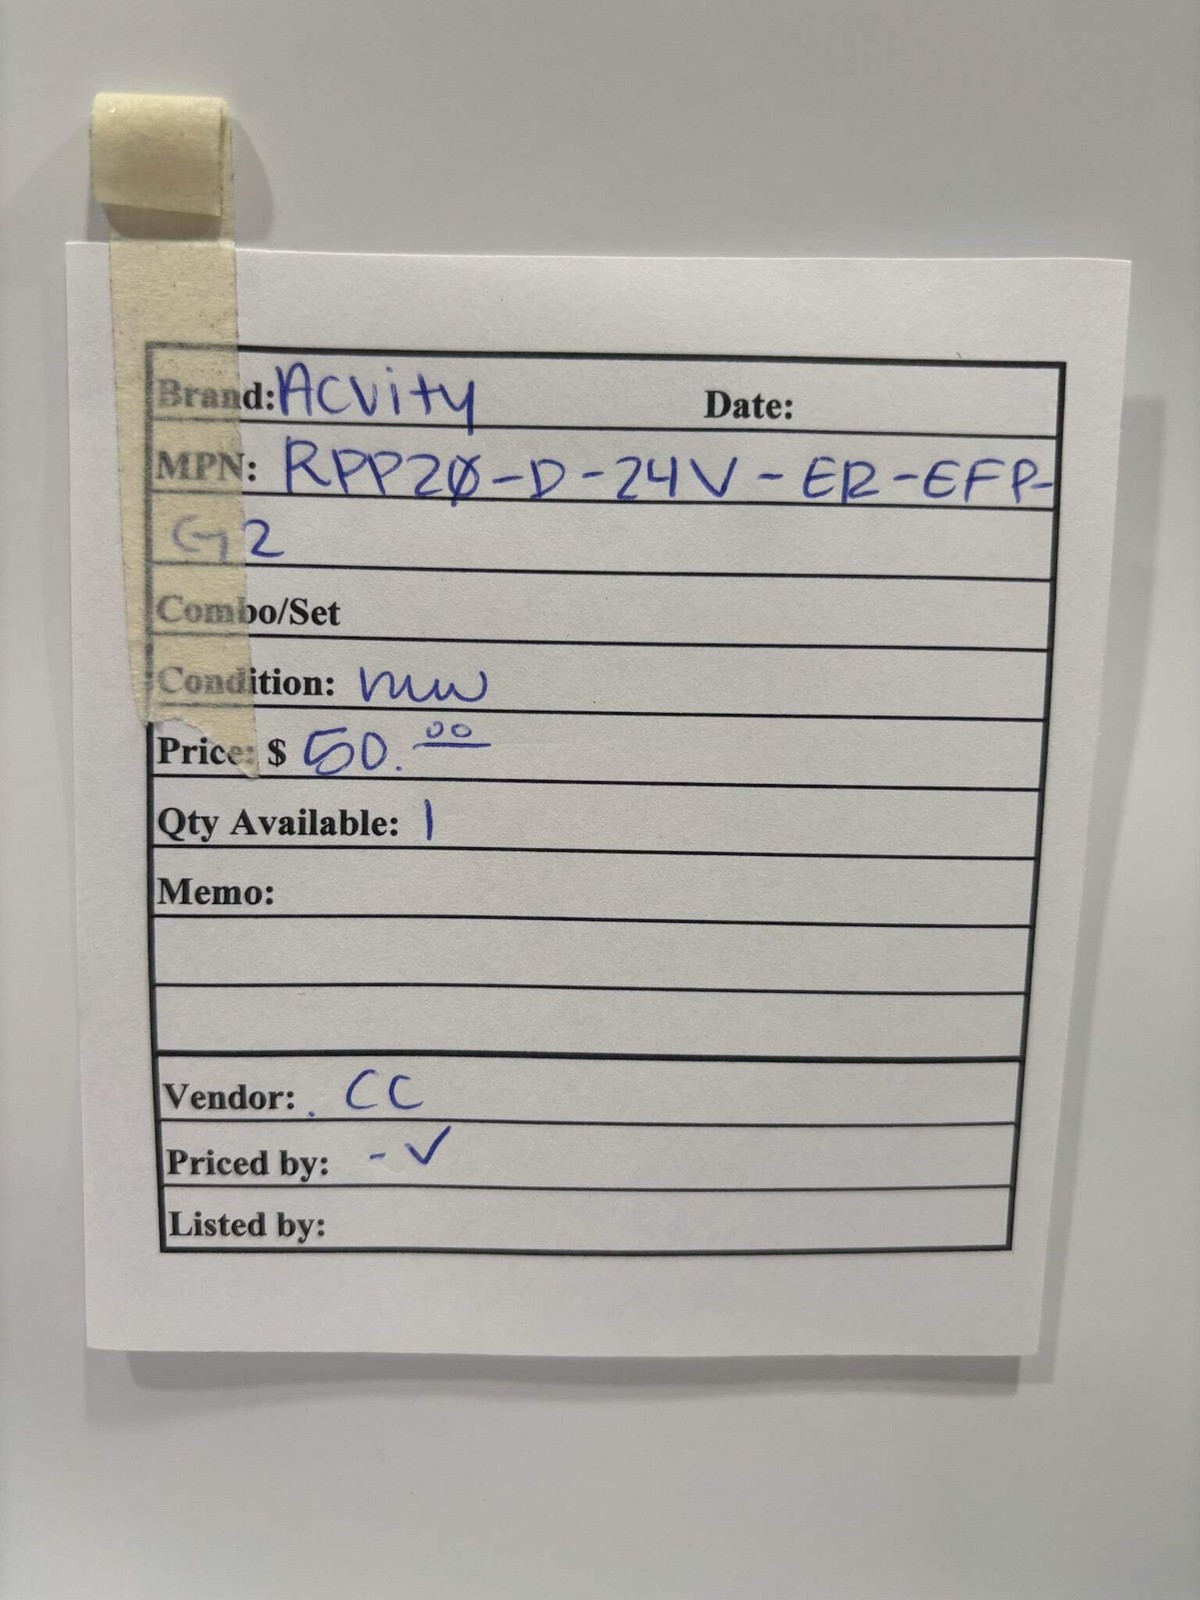 Brand: Acvity Date:
MPN: RPP20-D-24V-ER-EFP-
G2
Combo/Set
Condition: new
Price: $ 50.00
Qty Available: 1
Memo:
Vendor: CC
Priced by: -V
Listed by: